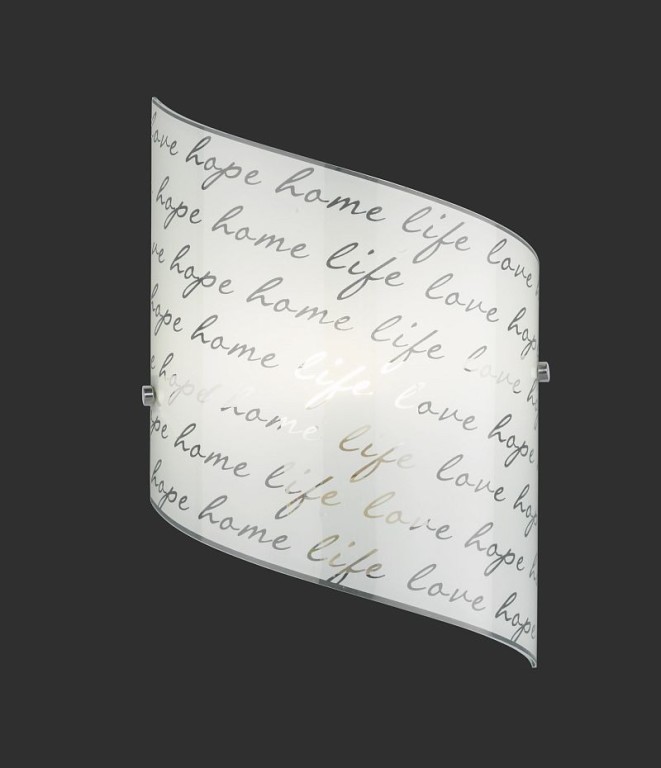 love hope home life love
hope home life love hop
ve hope home life love h
hope home life love hop
e hope home life love hop
pe home life love hope h
hope home life love hope